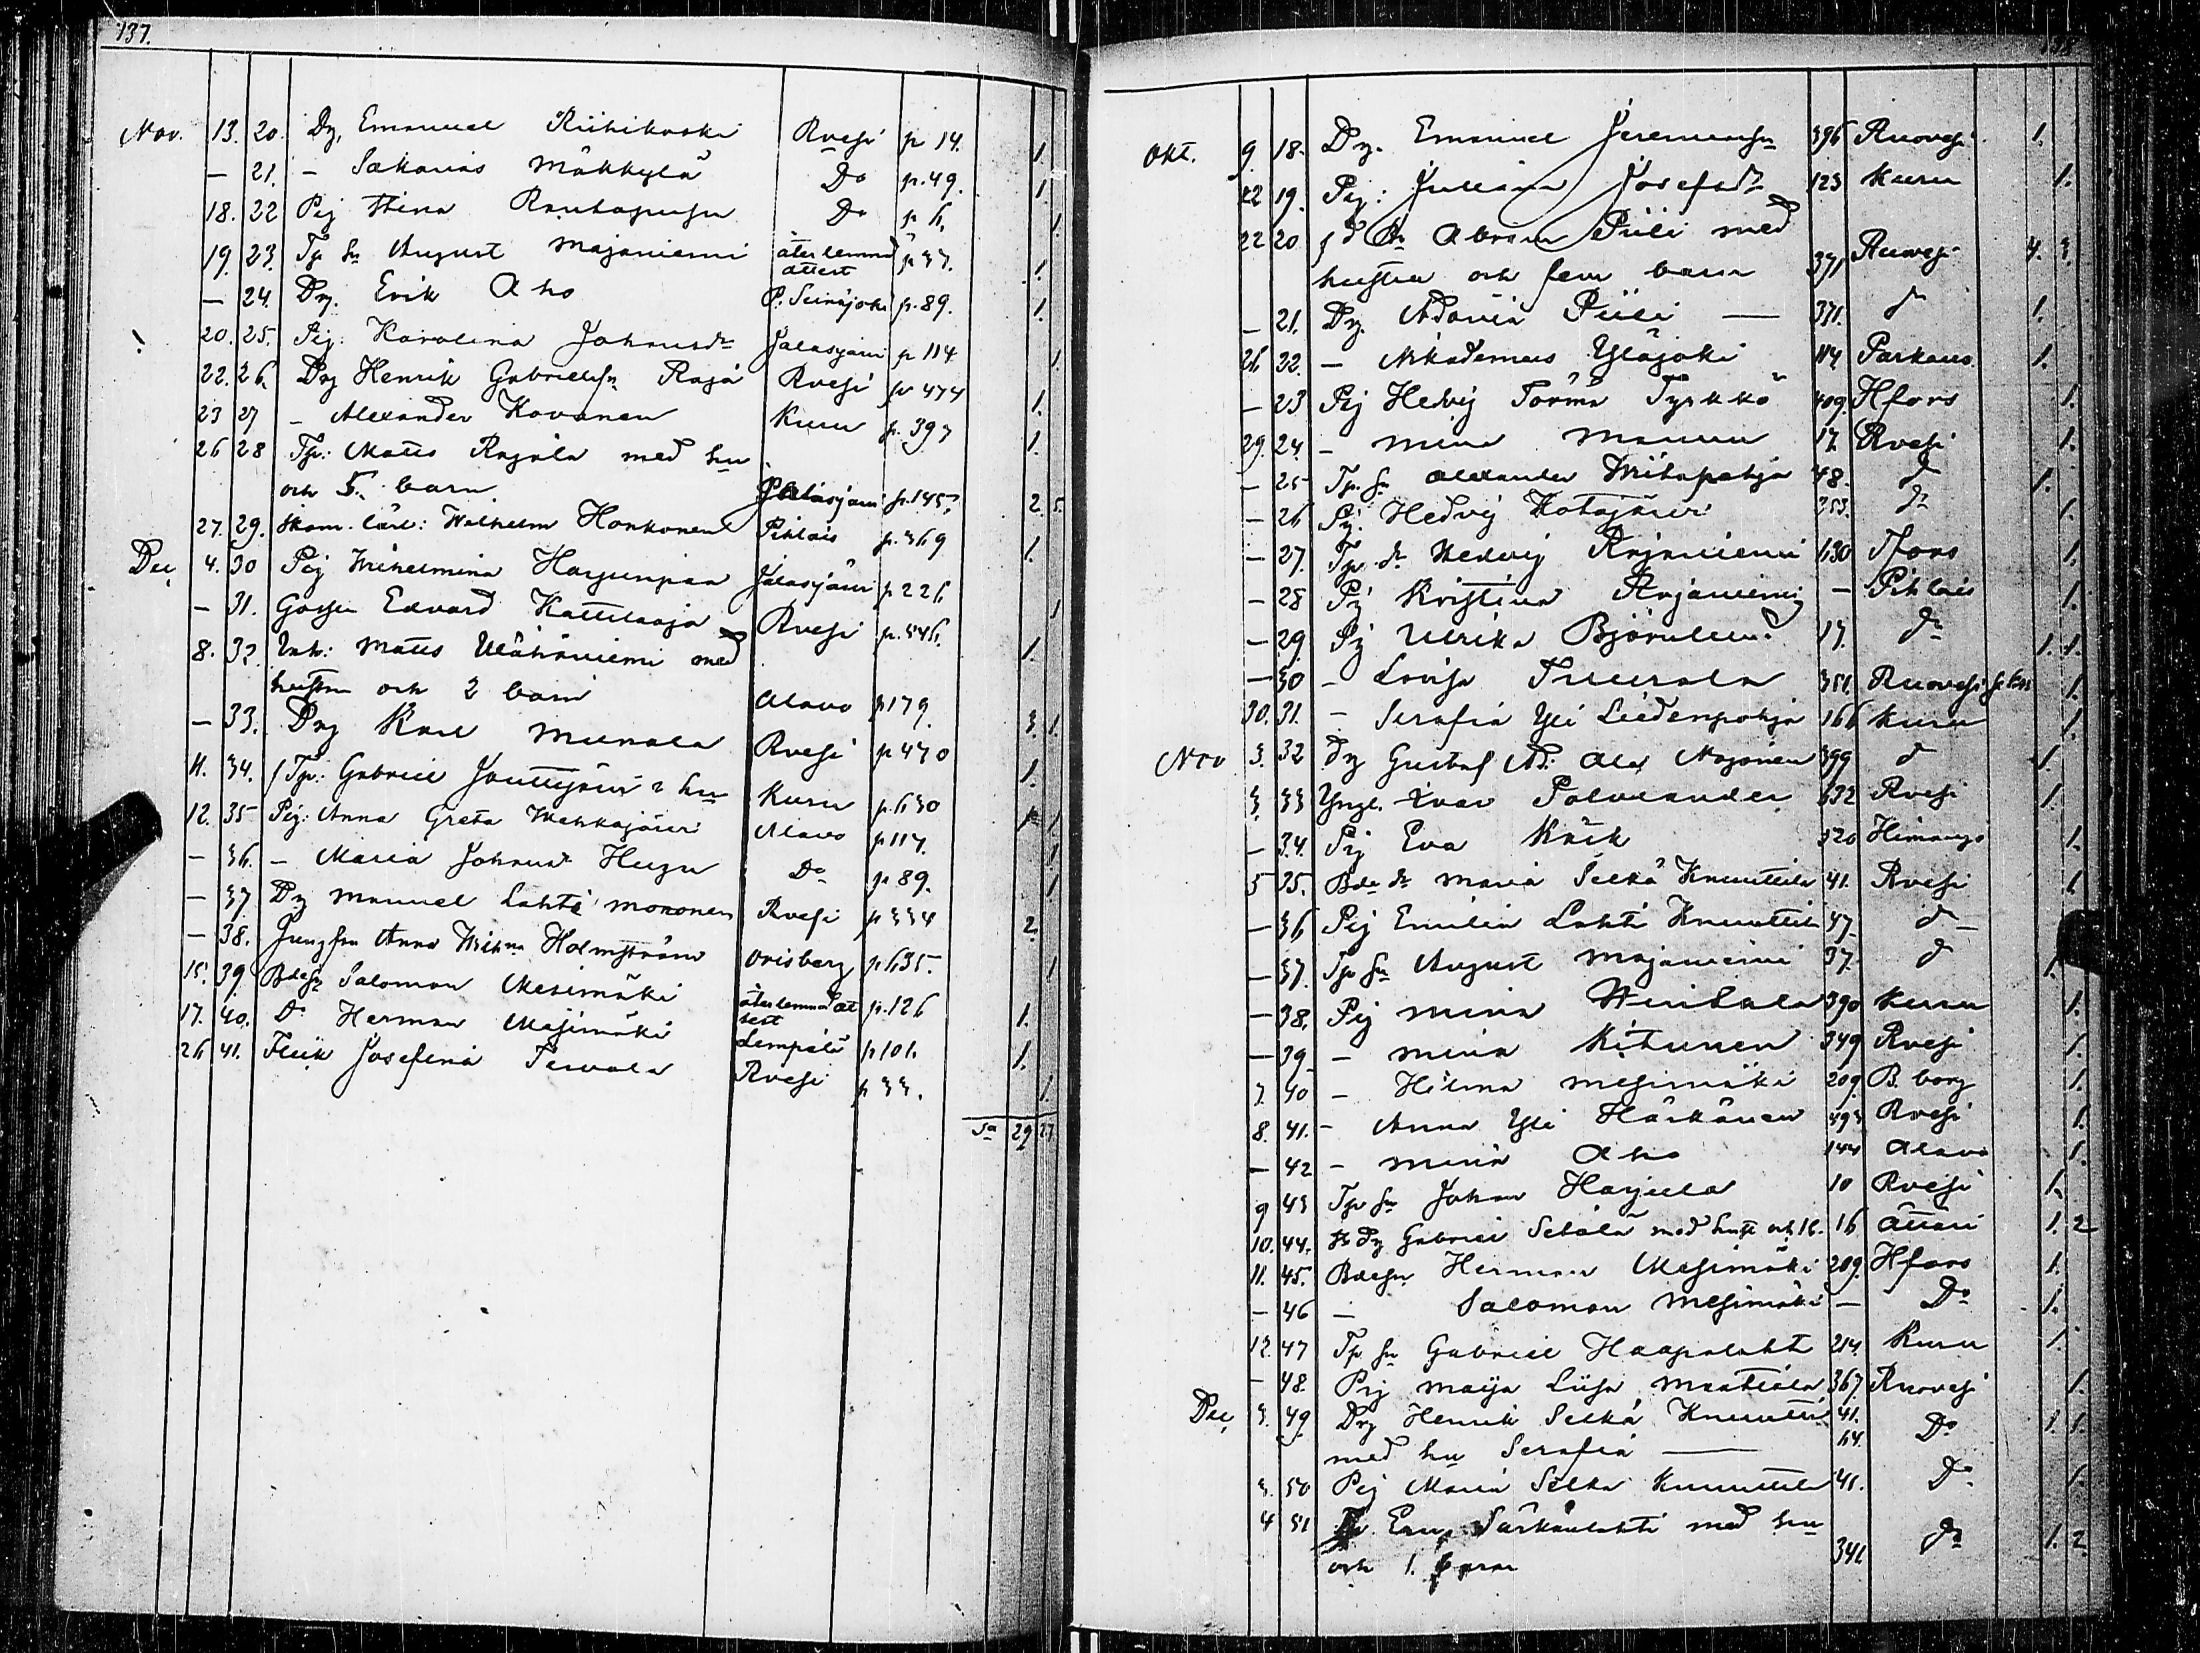 137.
Nov. 13. 20. Dg, Emanuel Riihikoski Rvesi p 14. 1.
— 21. — Sakarias Mäkkylä Do p. 49. 1
18. 22 Pig Stina Rautajupu Do p 6, 1.
19. 23. Tp sn August Majaniemi återlemnad attest p 37. 1.
— 24. Dg. Erik Aho P. Seinäjoki p. 89. 1.
20. 25. Pig: Karolina Johansdr Jalasjärvi p 114 1.
22. 26. Dg Henrik Gabrielsn Rajá Rvesi p 474 1.
23 27 — Alexander Kovanen Kuru p. 397 1.
26 28 Tp: Matts Rajala med hu
och 5. barn. Jalasjärvi p. 145. 2. 5.
27. 29. Skom. lärl: Wilhelm Honkonen Pihlais p. 369 1.
Dec, 4. 30 Pig Wilhelmina Harjunpää Jalasjärvi p 226 1
— 31. Gossen Edvard Kattilaaja Rvesi p. 346. 1.
8. 32. Inh: Matts med
hustru och 2 barn Alavo p 179. 3. 1.
— 33. Drg Karl Mulnala Rvesi p 470 1.
11. 34. f Tp: Gabriel Jouttijärvi s hu Kuru p. 630 1.
12. 35 Pig: Anna Greta Wehkajärvi Alavo p 117. 1
— 36. — Maria Johansdr Hugu Do p 89. 1
— 37 Dg Manuel Lahti Mononen Rvesi p 334 2.
— 38. Jungfru Anna Wilhna Holmström Orisberg p 635. 1
15. 39. Bdesn Salomon Mesimäki återlemnad attest p. 126 1.
17. 40. Do Herman Mesimäki Lempälä p 101. 1.
26 41. Flick Josefina Tervala Rvesi p 33. 1.
Sa 29 27.
138
Okt. 9. 18. Dg. Emanuel Jeremiasn 396 Ruovesi 1.
22 19. Pig: Juliana Josefsdr 123 Kuru 1.
22 20 f d Abram Piili med
hustru och fem barn 371 Ruovesi 4. 3.
— 21. Dg Adonia Piili — 371. d 1.
26 22. — Nikodemus Yläjoki 114 Parkano 1.
— 23 Pig Hedvig Törmä Tyrkkö 409. Hfors 1.
29. 24. — Mina Mannu 17. Rvesi 1.
— 25 Tp. sn Alexander Mikapohja 48. d 1.
— 26 Pig. Hedvig Kotajärvi 353. do 1.
— 27. Tp. dr Hedvig Rajaniemi 630 Hfors 1.
— 28 Pig Kristina Rajaniemi — Pihlais 1.
— 29. Pig Ulrika Björnlund 17. do 1. 1.
— 30 — Lovisa Tuurala 351. Ruovesi 1.
30. 31. — Serafia Yli Liedenpohja 166 Kuru 1.
Nov 3. 32 Dg Gustaf Ad: Alex Majanen 399 d 1.
3. 33 Yngl. Ivar Polviander 632 Rvesi 1
— 34. Pig Eva Kräk 320 Himango 1.
5 35. Bde dr Maria Selkä Knuuttila 41. Rvesi 1
— 36 Pig Emilia Lahti Knuuttila 47. d
— 37. Tp sn August Majaniemi 37. d 1.
— 38. Pig Mina Wiitala 390 Kuru 1.
— 39. — Mina Kitunen 349 Rvesi 1.
7. 40 — Hilma Mesimäki 209. B. borg 1.
8. 41. — Anna Yli Härkönen 493 Rvesi 1.
— 42 — Mina Aho 144 Alavo 1.
9 43 Tp sn Johan Harjula 10 Rvesi 1.
10. 44. Dg Gabriel Setälä med hust och 1 b. 16 Ätsäri 1. 2
11. 45. Bdesn Herman Mesimäki 209. Hfors 1.
— 46 — Salomon Mesimäki — Do 1.
12. 47 Tp sn Gabriel Haapalaht 214. Kuru 1.
— 48. Pig Maija Liisa Mantiala 367. Ruovesi 1.
Dec, 3. 49. Dg Henrik Selkä Knuuttil 41. Do 1. 1.
med hu Serafia — 64.
3. 50 Pig Maria Selkä Knuuttila 41. Do 1.
4 51 Tp. Särkänlahti med hu
och 1. barn 341 do 1. 2.